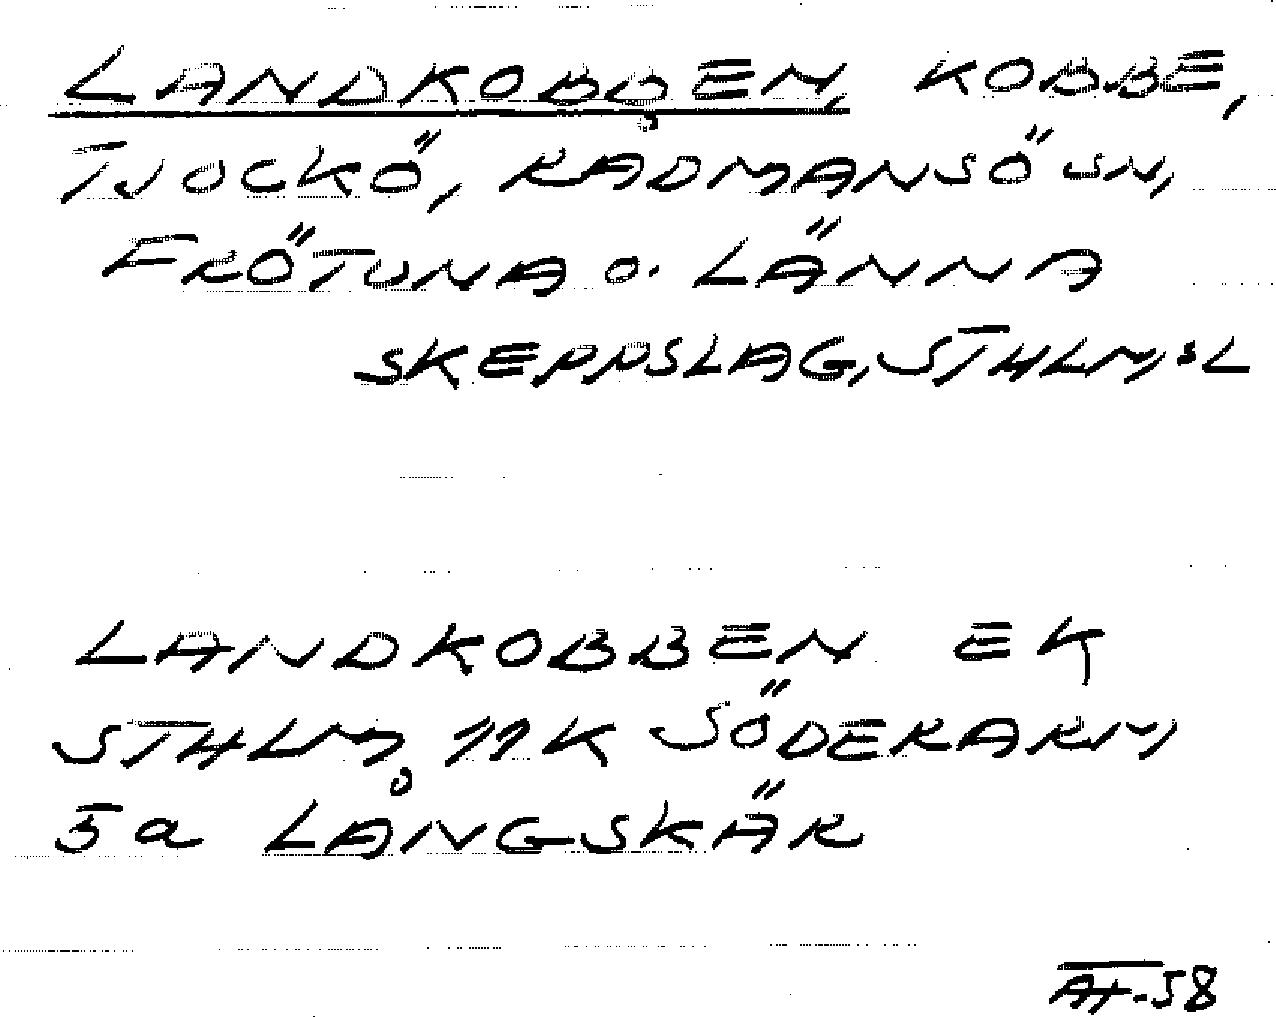 LANDKOBBEN, KOBBE,
TJOCKÖ, RÅDMANSÖ SN,
FRÖTUNA O. LÄNNA
SKEPPSLAG, STHLM:SL
LANDKOBBEN EK
STHLM, 11K SÖDERARM,
5a LÅNGSKÄR
AH-58